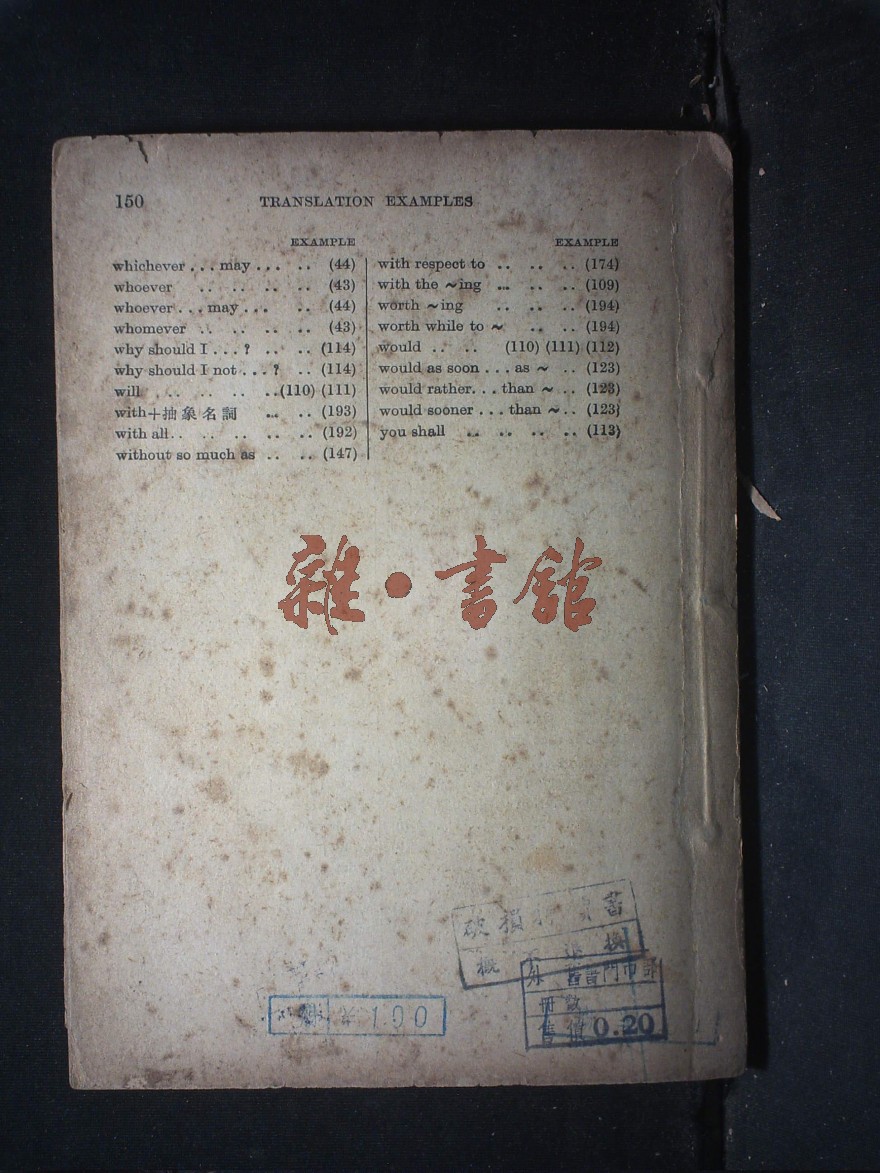 150 TRANSLATION EXAMPLES
EXAMPLE
whichever . . . may . . . .. (44)
whoever .. .. .. .. (43)
whoever . . . may . . . .. (44)
whomever .. .. .. .. (43)
why should I . . . ? .. .. (114)
why should I not . . . ? .. (114)
will .. .. .. .. ..(110) (111)
with+抽象名詞 ... .. (193)
with all .. .. .. .. .. (192)
without so much as .. .. (147)
EXAMPLE
with respect to .. .. .. (174)
with the ~ing ... .. .. (109)
worth ~ing .. .. .. (194)
worth while to ~ .. .. (194)
would .. .. (110) (111) (112)
would as soon . . . as ~ .. (123)
would rather. . . than ~ .. (123)
would sooner . . . than ~ .. (123)
you shall .. .. .. .. (113)
雜·書館
破損 書
概 換
舊書門市部
冊數
售價 0.20
¥ 100